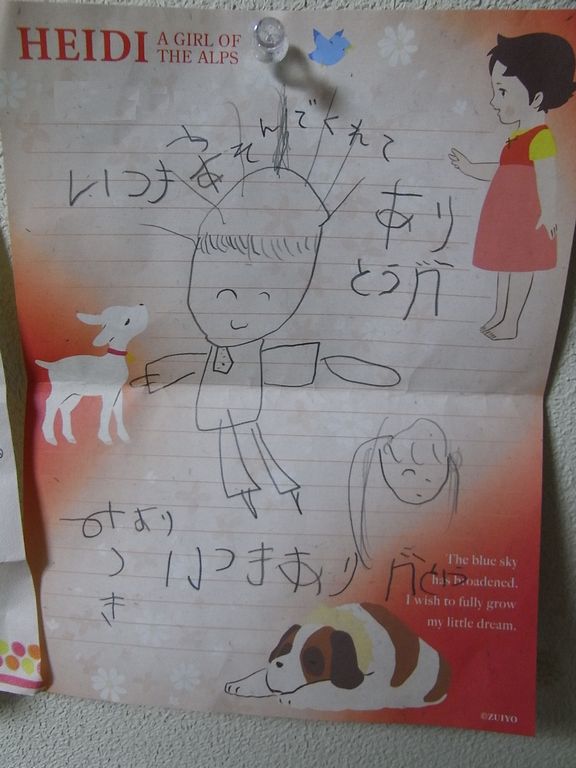 HEIDI A GIRL OF
THE ALPS
いつもあそんでくれて
あり
とうが
みおり
つ
き
いつもあり がとう
The blue sky
has broadened.
I wish to fully grow
my little dream.
©ZUIYO